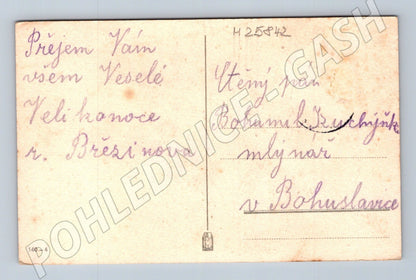 H 25842
Přejem Vám
všem Veselé
Velikonoce
r. Březinova
Ctěný pán
Bohumil Kuchyňk
mlynář
v Bohuslavice
POHLEDNICE - GASH